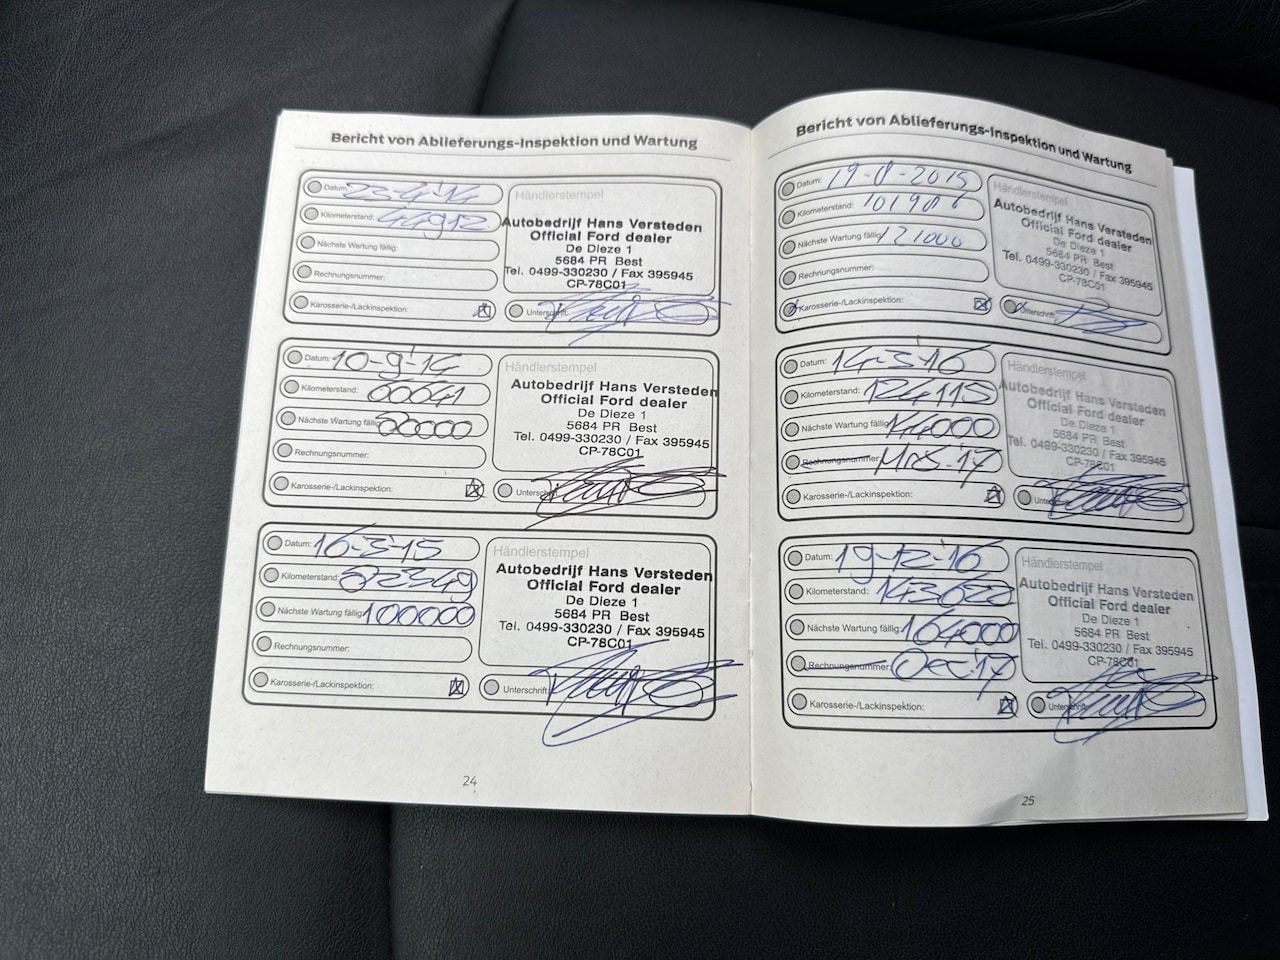 Bericht von Ablieferungs-Inspektion und Wartung
Datum: 23-4-'14
Kilometerstand: 44912
Nächste Wartung fällig:
Rechnungsnummer:
Karosserie-/Lackinspektion:
Händlerstempel
Autobedrijf Hans Versteden
Official Ford dealer
De Dieze 1
5684 PR Best
Tel. 0499-330230 / Fax 395945
CP-78C01
Unterschrift:
Datum: 10-9-'14
Kilometerstand: 60641
Nächste Wartung fällig:
Rechnungsnummer:
Karosserie-/Lackinspektion:
Händlerstempel
Autobedrijf Hans Versteden
Official Ford dealer
De Dieze 1
5684 PR Best
Tel. 0499-330230 / Fax 395945
CP-78C01
Unterschrift
Datum: 16-3-'15
Kilometerstand: 82349
Nächste Wartung fällig: 100000
Rechnungsnummer:
Karosserie-/Lackinspektion:
Händlerstempel
Autobedrijf Hans Versteden
Official Ford dealer
De Dieze 1
5684 PR Best
Tel. 0499-330230 / Fax 395945
CP-78C01
Unterschrift:
24
Bericht von Ablieferungs-Inspektion und Wartung
Datum: 19-8-2015
Kilometerstand:
Nächste Wartung fällig: 121000
Rechnungsnummer:
Karosserie-/Lackinspektion:
Händlerstempel
Autobedrijf Hans Versteden
Official Ford dealer
De Dieze 1
5684 PR Best
Tel. 0499-330230 / Fax 395945
CP-78C01
Unterschrift:
Datum: 14-3-'16
Kilometerstand: 124115
Nächste Wartung fällig: 144000
Rechnungsnummer: Mrs-17
Karosserie-/Lackinspektion:
Händlerstempel
Autobedrijf Hans Versteden
Official Ford dealer
De Dieze 1
5684 PR Best
Tel. 0499-330230 / Fax 395945
CP-78C01
Unterschrift
Datum: 19-12-'16
Kilometerstand: 143622
Nächste Wartung fällig: 164000
Rechnungsnummer: Dec-17
Karosserie-/Lackinspektion:
Händlerstempel
Autobedrijf Hans Versteden
Official Ford dealer
De Dieze 1
5684 PR Best
Tel. 0499-330230 / Fax 395945
CP-78C01
Unterschrift:
25